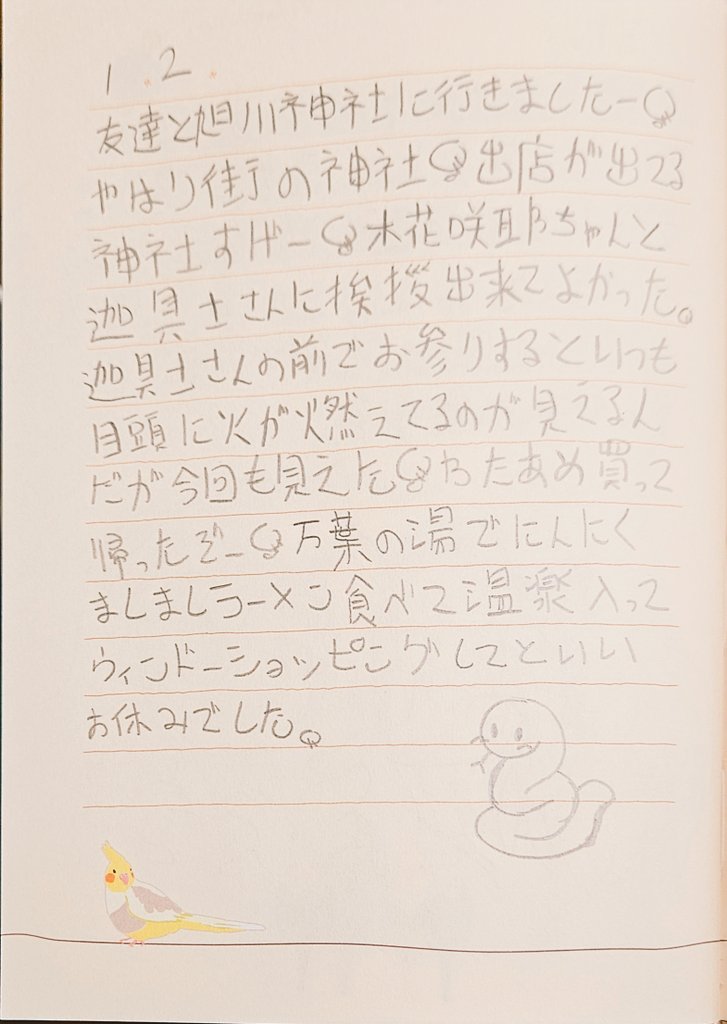 1.2.
友達と旭川神社に行きましたー
やはり街の神社 出店が出てる
神社すげー 木花咲耶ちゃんと
迦具土さんに挨拶出来てよかった。
迦具土さんの前でお参りするといつも
目頭に火が燃えてるのが見えるん
だが今回も見えた わたあめ買って
帰ったぞー 万葉の湯でにんにく
ましましラーメン食べて温泉入って
ウィンドーショッピングしてといい
お休みでした。